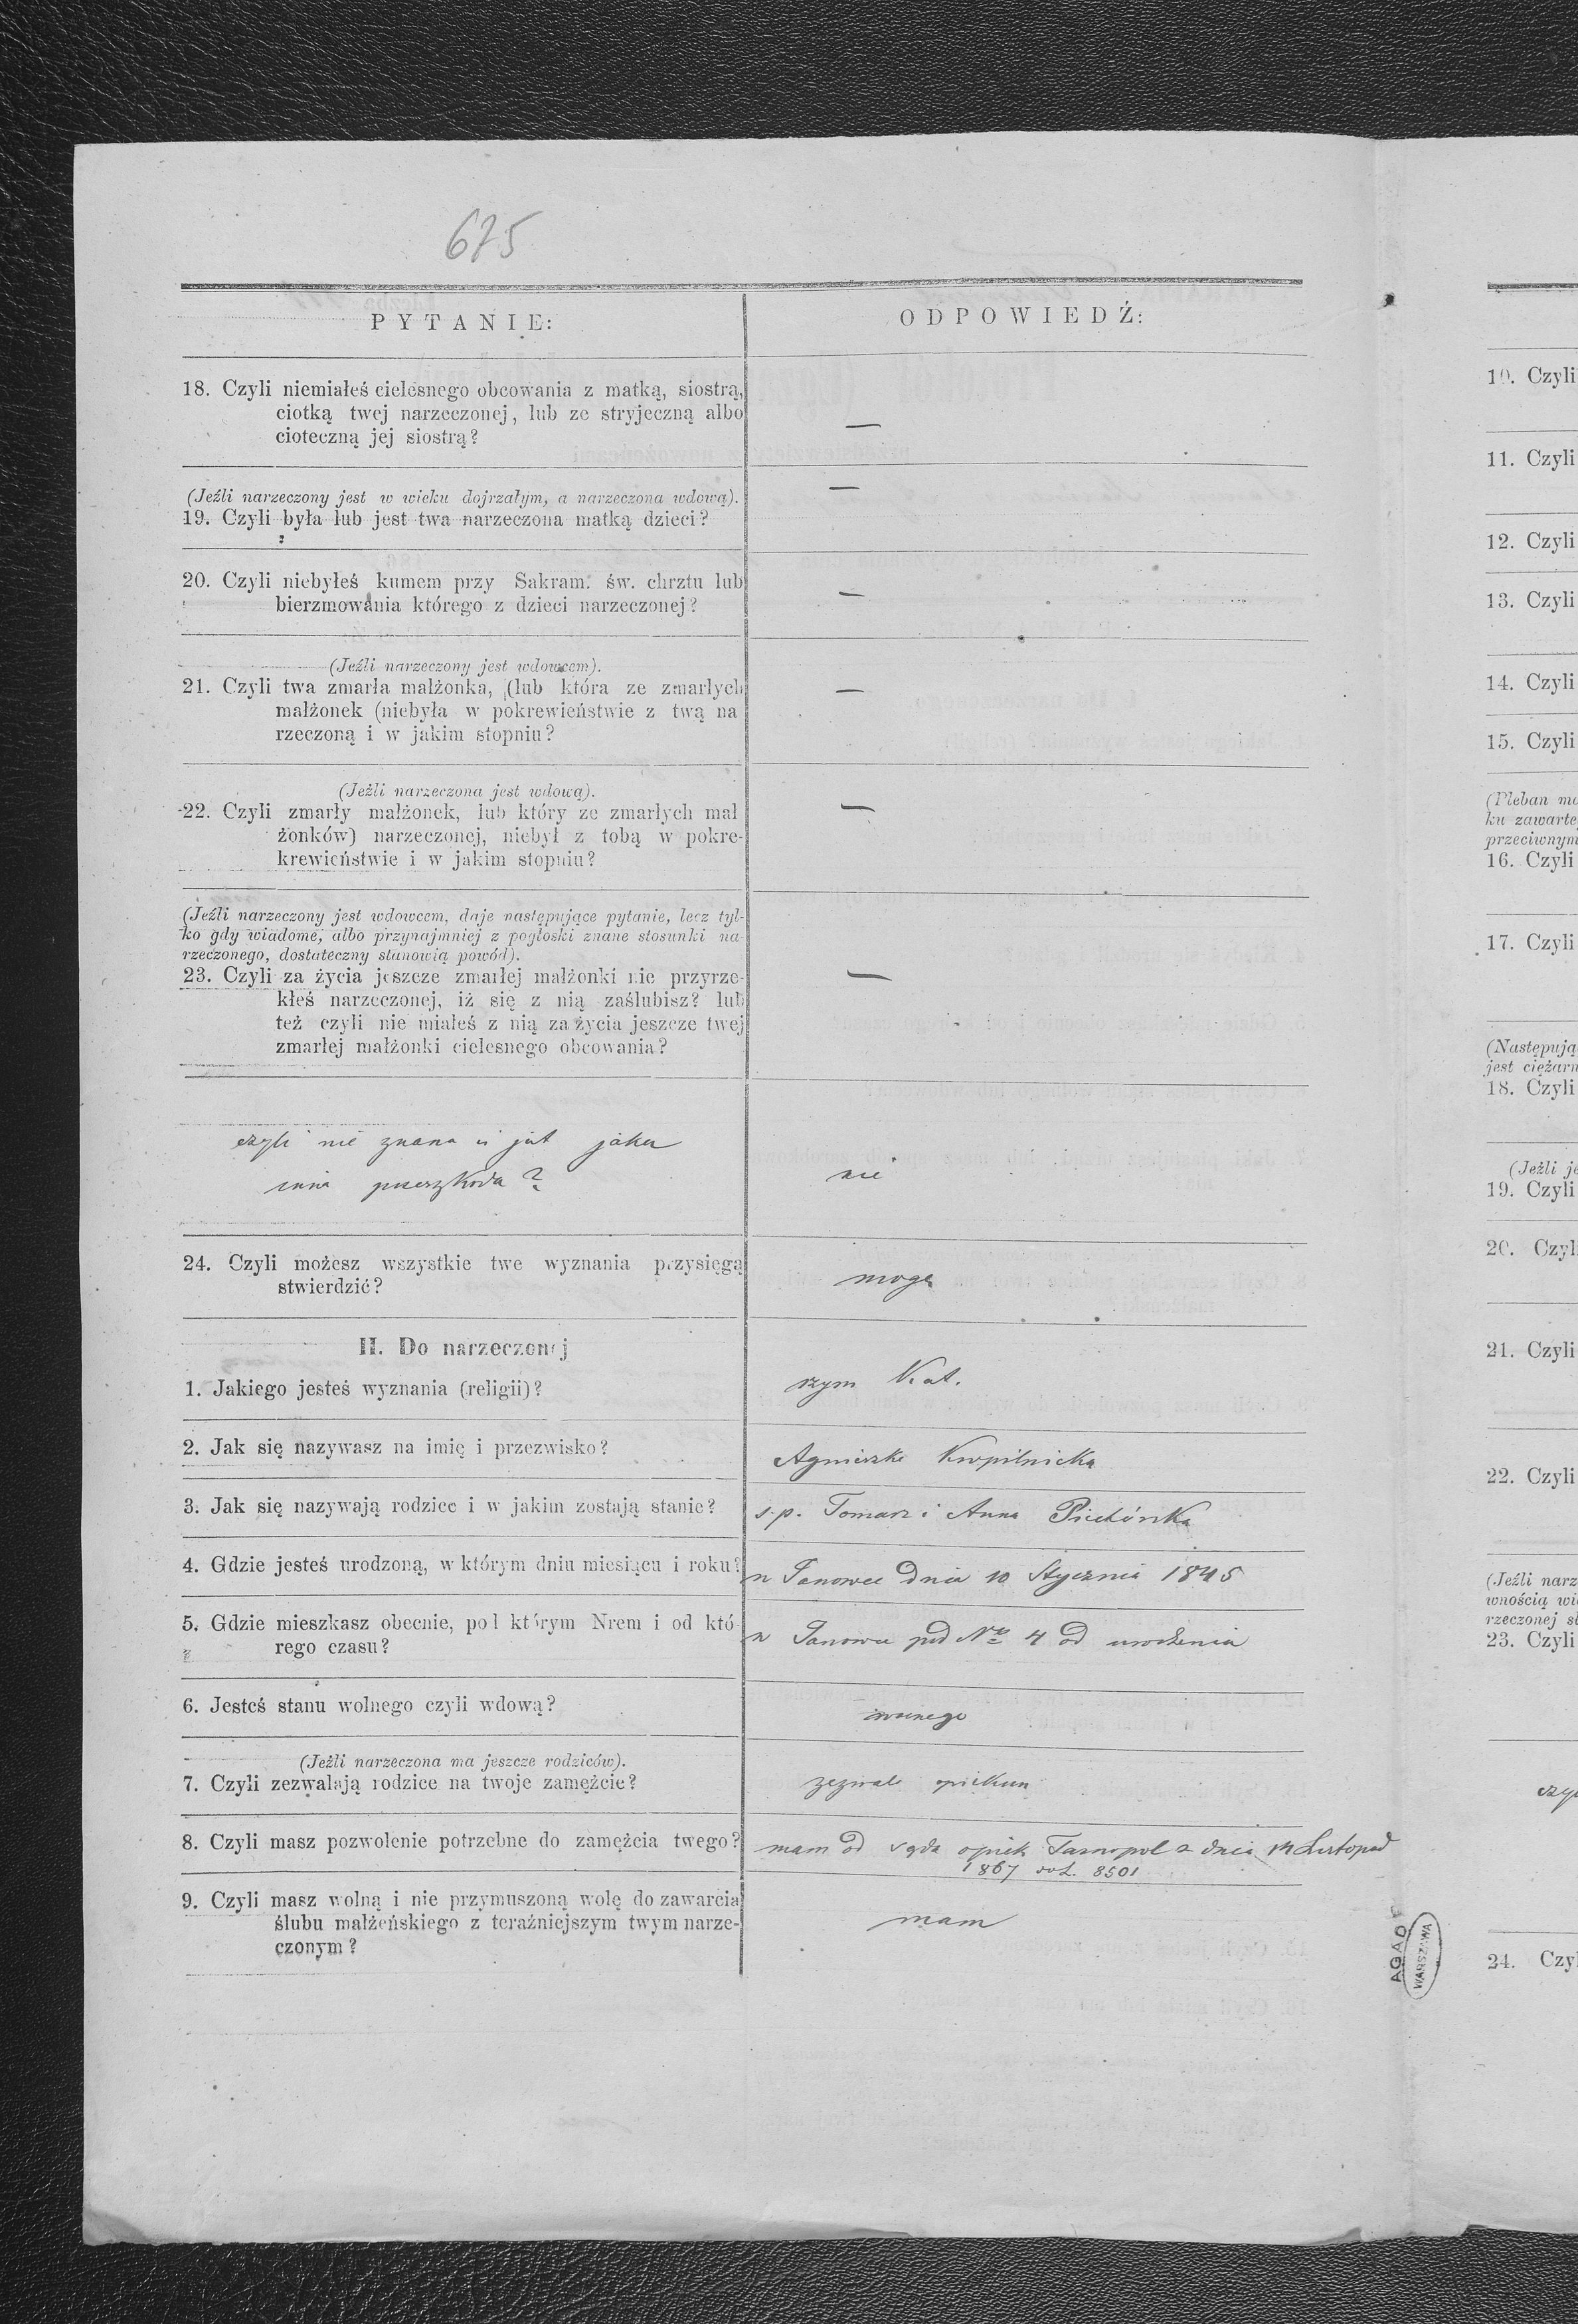 675
PYTANIE:
ODPOWIEDŹ:
18. Czyli niemiałeś cielesnego obcowania z matką, siostrą,
ciotką twej narzeczonej, lub ze stryjeczną albo
cioteczną jej siostrą?
—
(Jeźli narzeczony jest w wieku dojrzałym, a narzeczona wdową).
19. Czyli była lub jest twa narzeczona matką dzieci?
—
20. Czyli niebyłeś kumem przy Sakram. św. chrztu lub
bierzmowania którego z dzieci narzeczonej?
—
(Jeźli narzeczony jest wdowcem).
21. Czyli twa zmarła małżonka, (lub która ze zmarłych
małżonek (niebyła w pokrewieństwie z twą na
rzeczoną i w jakim stopniu?
—
(Jeźli narzeczona jest wdową).
22. Czyli zmarły małżonek, lub który ze zmarłych mał
żonków) narzeczonej, niebył z tobą w pokre-
krewieństwie i w jakim stopniu?
—
(Jeźli narzeczony jest wdowcem, daje następujące pytanie, lecz tyl-
ko gdy wiadome, albo przynajmniej z pogłoski znane stosunki na-
rzeczonego, dostateczny stanowią powód).
23. Czyli za życia jeszcze zmarłej małżonki nie przyrze-
kłeś narzeczonej, iż się z nią zaślubisz? lub
też czyli nie miałeś z nią za życia jeszcze twej
zmarłej małżonki cielesnego obcowania?
—
czyli nie znana ci jest jaka
inna przeszkoda?
nie
24. Czyli możesz wszystkie twe wyznania przysięgą
stwierdzić?
mogę
II. Do narzeczonej
1. Jakiego jesteś wyznania (religii)?
rzym Kat.
2. Jak się nazywasz na imię i przezwisko?
Agnieszka
3. Jak się nazywają rodzice i w jakim zostają stanie?
s.p. Tomasz i Anna
4. Gdzie jesteś urodzoną, w którym dniu miesiącu i roku?
w dnia 10 Stycznia 1845
5. Gdzie mieszkasz obecnie, pod którym Nrem i od któ-
rego czasu?
w pod Nr 4 od urodzenia
6. Jesteś stanu wolnego czyli wdową?
wolnego
(Jeźli narzeczona ma jeszcze rodziców).
7. Czyli zezwalają rodzice na twoje zamężcie?
zezwala opiekun
8. Czyli masz pozwolenie potrzebne do zamężcia twego?
mam od sąda opiek Tarnopol z dnia 14 Listopad
1867 8501
9. Czyli masz wolną i nie przymuszoną wolę do zawarcia
ślubu małżeńskiego z teraźniejszym twym narze-
czonym?
mam
AGAD
WARSZAWA
10. Czyli
11. Czyli
12. Czyli
13. Czyli
14. Czyli
15. Czyli
(Pleban ma
ku zawarte
przeciwnym
16. Czyli
17. Czyli
(Następują
jest ciężarn
18. Czyli
(Jeźli je
19. Czyli
20. Czyl
21. Czyli
22. Czyli
(Jeźli narz
wnością wi
rzeczonej st
23. Czyli
24. Czy